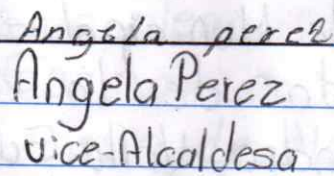 Angela perez
Angela Perez
vice-Alcaldesa